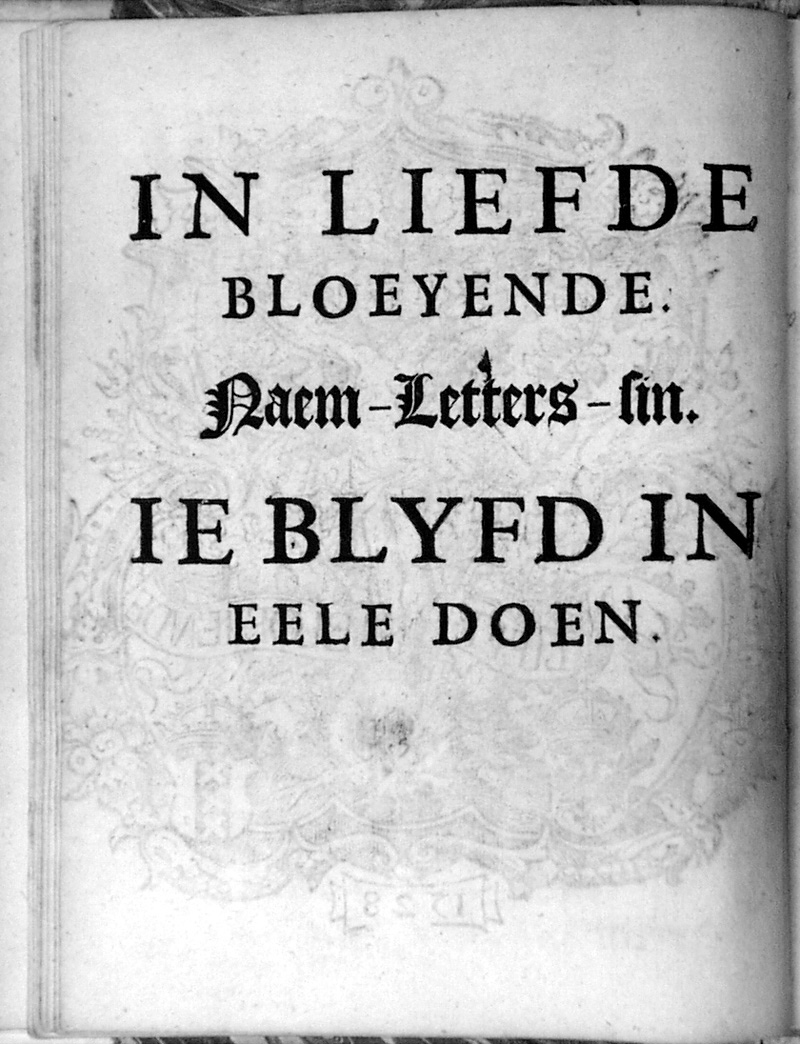 IN LIEFDE
BLOEYENDE.
Naem-Letters-ſin.
IE BLYFD IN
EELE DOEN.